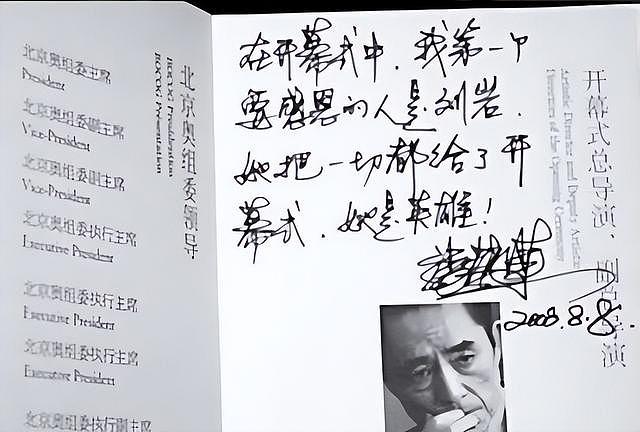 北京奥组委主席
President
北京奥组委副主席
Vice-President
北京奥组委副主席
Vice-President
北京奥组委执行主席
Executive President
北京奥组委执行主席
Executive President
北京奥组委执行主席
Executive President
北京奥组委执行副主席
北京奥组委领导
BOCOG Presentation
在开幕式中，我第一个
要感恩的人是刘岩．
她把一切都给了开
幕式．她是英雄！
2008.8.8.
开幕式总导演、副总导演